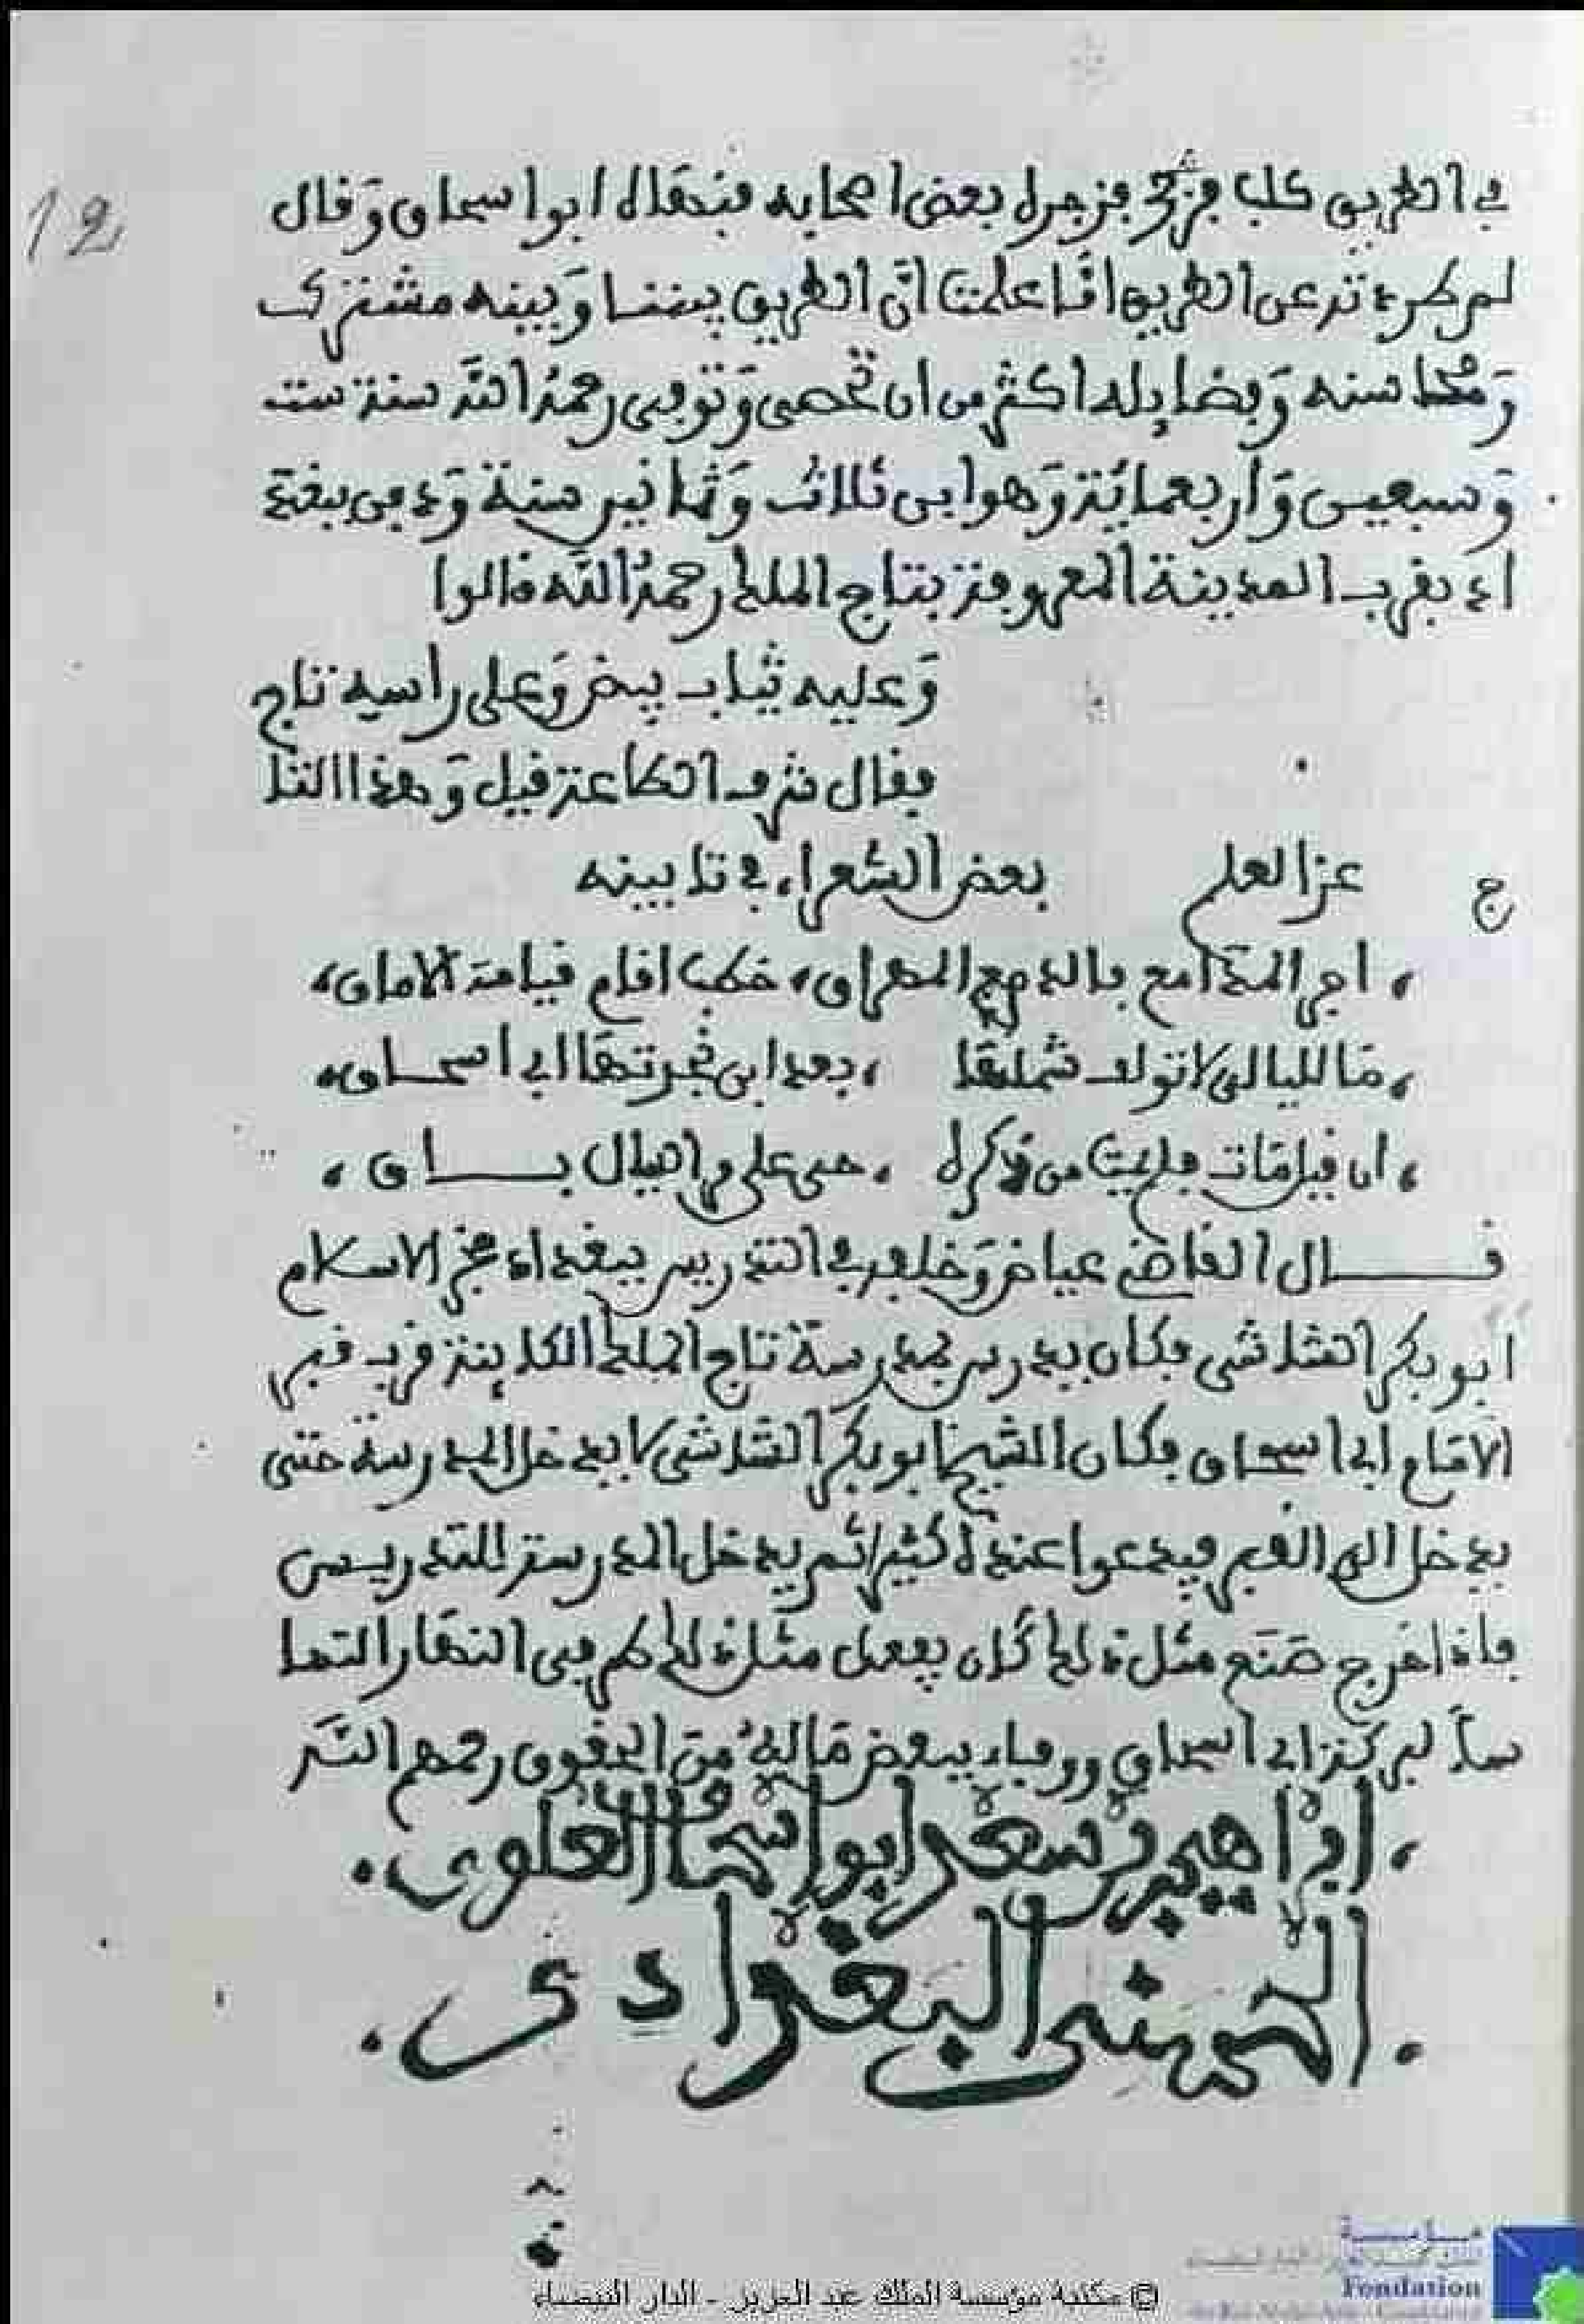 12
في الطريق كلب فزجره بعض أصحابه فنهاه ابو اسحاق وَقال
لم طردته عن الطريق امَا علمت انّ الطريق بيننا وَبينه مشترك
وَمحاسنه وَفضايله اكثر من ان تحصى وَتوفي رحمهُ اللّه سنة ست
وَسبعين وَاربعمائة وَهو ابن ثلاث وَثمانين سنة وَدفن ببغد
اد بقرب المدينة المعروفة بتاج الملك رحمهُ اللّه قالوا
وَعليه ثياب بيض وَعلى راسه تاج
فقال شرف الطاعة قيل وَهذا التا
ج عز العلم بعض الشعراء في تابينه
، اجرى المدامع بالدم المهراق، خطب اقام قيامة الاماق،
، مَا لليالي لا تولف شملهَا ، بعد ابن بجدتهَا ابي اسحاق،
، ان قيل مَات فلم يمت من ذكره ، حي على مر الليال بــاق ،
قــال القاضي عياض وَخلفه في التدريس ببغداد فخر الاسلام
ابو بكر الشاشي فكان يدرس بمدرسة تاج الملك الكاينة قرب قبر
الامَام ابي اسحاق فكان الشيخ ابو بكر الشاشي لا يدخل المدرسة حتى
يدخل الى القبر فيدعوا عنده كثيرا ثم يدخل المدرسة للتدريس
فاذا خرج صَنَع مثل ذلك كَان يفعل مثل ذلك طرفي النهَار التما
ساً لبركة ابي اسحاق ووفاء ببعض مَا لهُ منَ الحقوق رحمهم اللّه
، ابراهيم بن سعد ابو اسحاق العلوي .
. الحسني البغدادي .
© مكتبة مؤسسة الملك عبد العزيز - الدار البيضاء
مؤسسة
Fondation